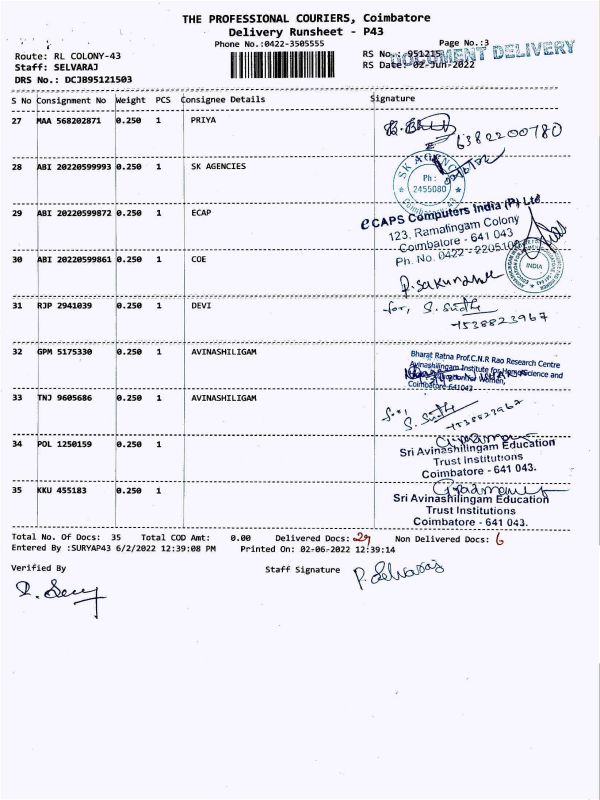 THE PROFESSIONAL COURIERS, Coimbatore
Delivery Runsheet - P43
Phone No.:0422-3505555
Page No.:3
Route: RL COLONY-43
RS No.: 951215
DOCUMENT DELIVERY
Staff: SELVARAJ
RS Date: 02-Jun-2022
DRS No.: DCJB95121503
S No Consignment No Weight PCS Consignee Details Signature
27 MAA 568202871 0.250 1 PRIYA
6382200780
28 ABI 20220599993 0.250 1 SK AGENCIES
SK AGENC
Ph :
2455080
Coimbatore-43
29 ABI 20220599872 0.250 1 ECAP
eCAPS Computers India (P) Ltd
123, Ramalingam Colony
Coimbalore - 641 043
Ph. No. 0422 - 2205100
30 ABI 20220599861 0.250 1 COE
INDIA
P. Sakunamle
31 RJP 2941039 0.250 1 DEVI
for, S. Sudha
7538823967
32 GPM 5175330 0.250 1 AVINASHILIGAM
Bharat Ratna Prof.C.N.R Rao Research Centre
Avinashilingam Institute for Home Science and
Women,
Coimbatore-641043
33 TNJ 9605686 0.250 1 AVINASHILIGAM
for, S. Sudha
7538823967
34 POL 1250159 0.250 1
Sri Avinashilingam Education
Trust Institutions
Coimbatore - 641 043.
35 KKU 455183 0.250 1
Sri Avinashilingam Education
Trust Institutions
Coimbatore - 641 043.
Total No. Of Docs: 35 Total COD Amt: 0.00 Delivered Docs: 29 Non Delivered Docs: 6
Entered By :SURYAP43 6/2/2022 12:39:08 PM Printed On: 02-06-2022 12:39:14
Verified By
Staff Signature P. Selvaraj